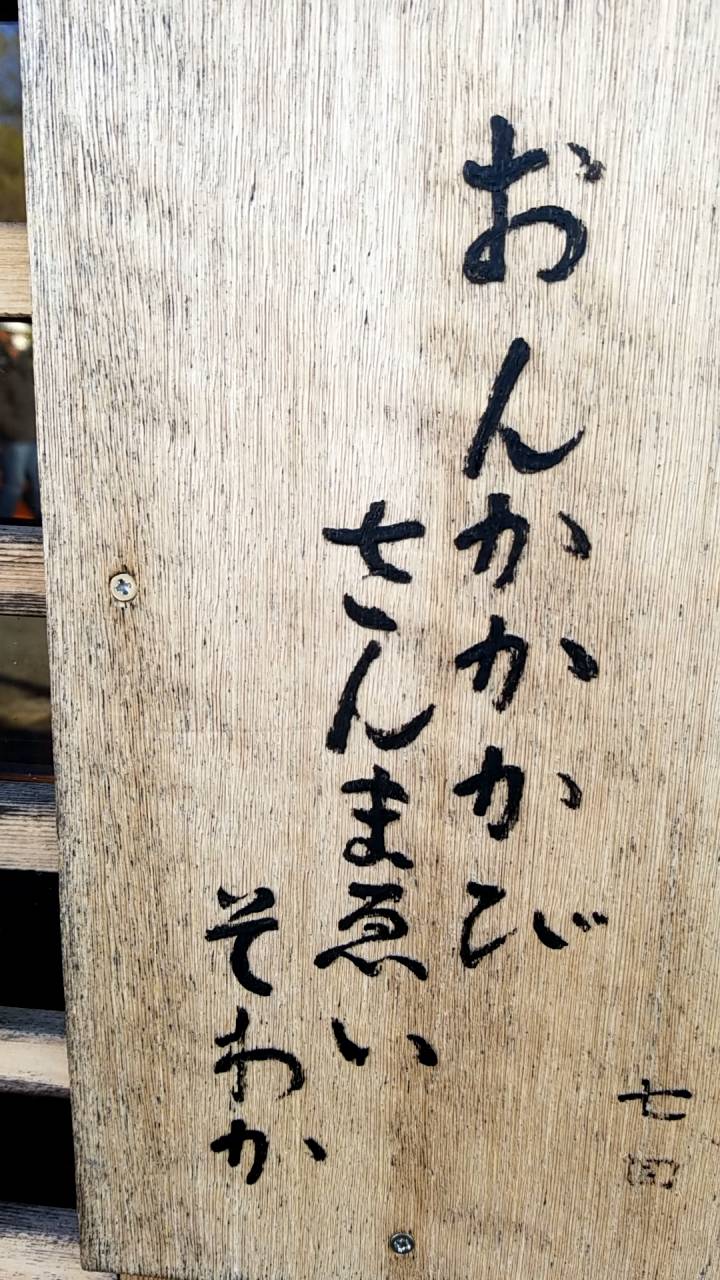 おんかかかび
さんまゑい
そわか
七回